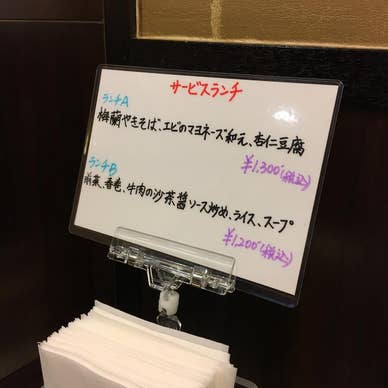 サービスランチ
ランチA
梅蘭やきそば、エビのマヨネーズ和え、杏仁豆腐
¥1,300-(税込)
ランチB
前菜、春巻、牛肉の沙茶醤ソース炒め、ライス、スープ
¥1,200-(税込)